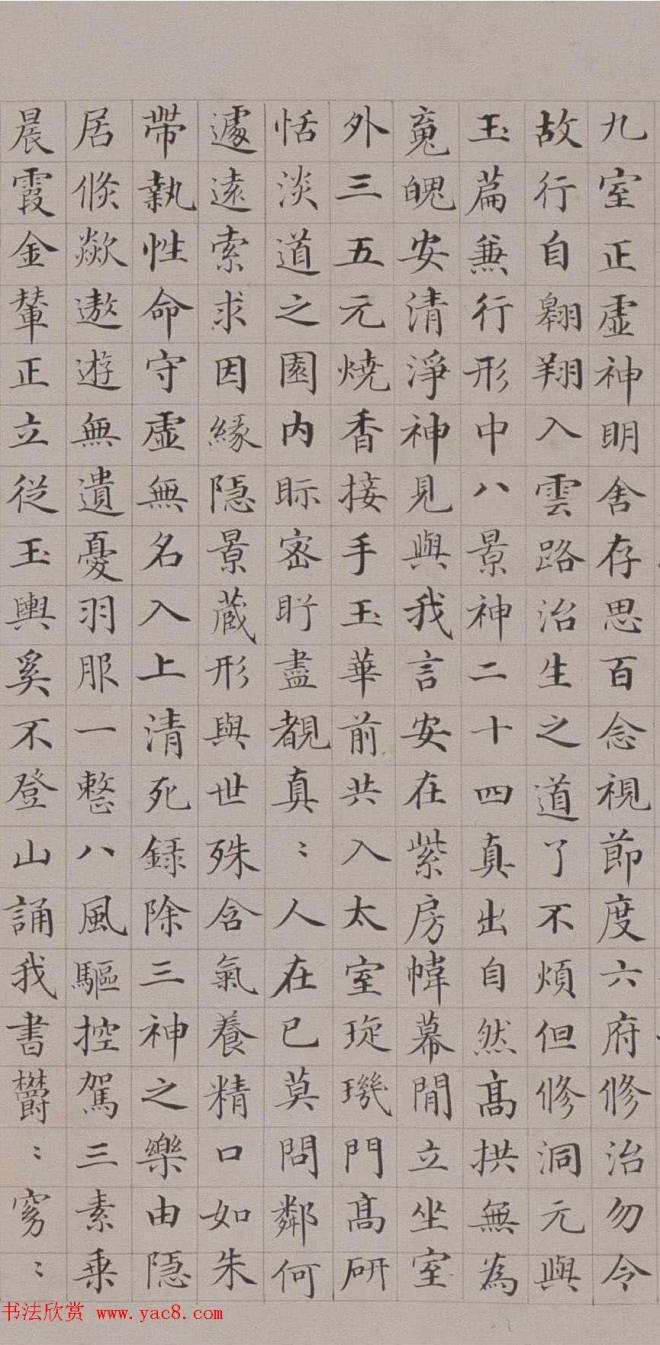 九室正虛神眀舍存思百念視節度六府修治勿令
故行自翱翔入雲路治生之道了不煩但修洞元與
玉篇兼行形中八景神二十四真出自然高拱無為
魂魄安清淨神見與我言安在紫房幃幕閒立坐室
外三五元燒香接手玉華前共入太室琁璣門高研
恬淡道之園內眎密盱盡覩真〻人在已莫問鄰何
遽遠索求因緣隱景藏形與世殊含氣養精口如朱
帶執性命守虛無名入上清死錄除三神之樂由隱
居倏欻遨遊無遺憂羽服一整八風驅控駕三素乘
晨霞金輦正立從玉輿奚不登山誦我書鬱〻窈〻
书法欣赏 www.yac8.com